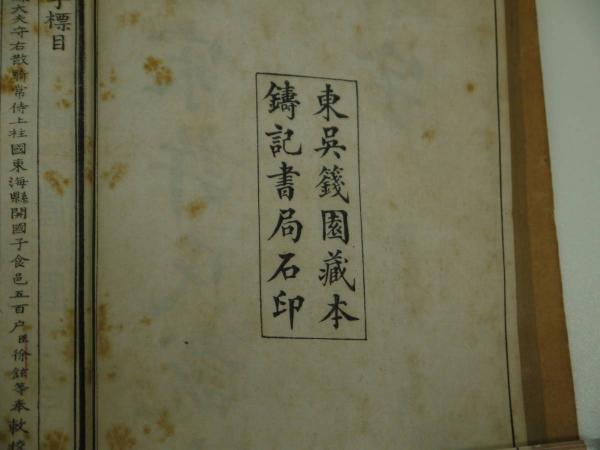 東吳籛園藏本
鑄記書局石印
字標目
大夫守右散騎常侍上柱國東海縣開國子食邑五百户臣徐鉉等奉敕校